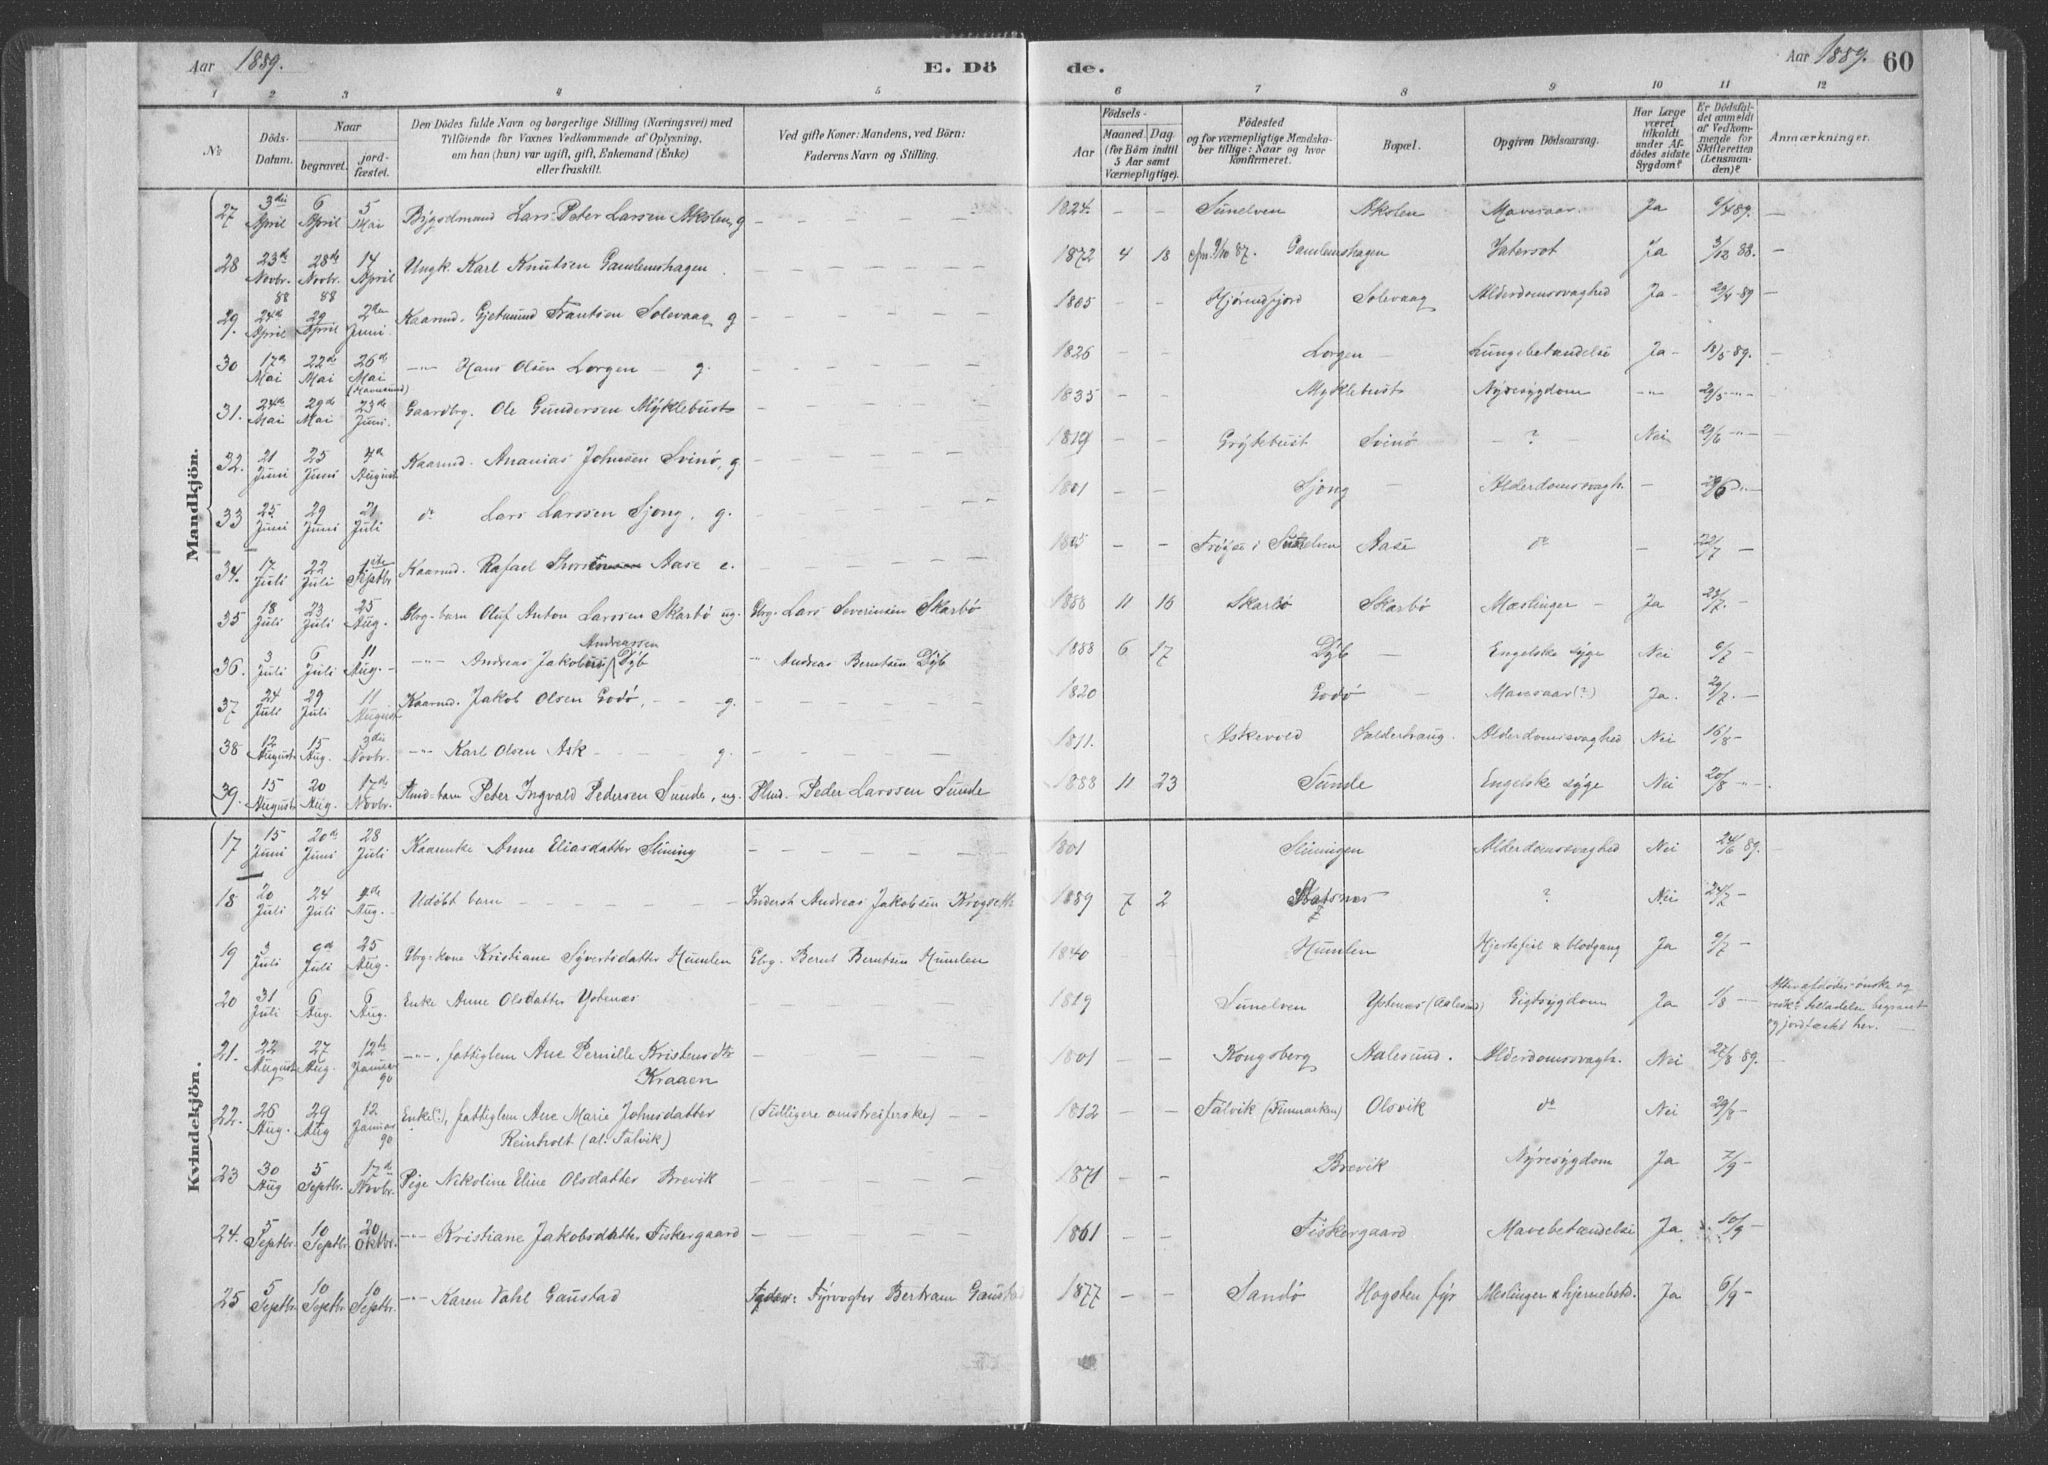 Aar 1889.
E. Dö
de.
Aar 1889. 60
1 2 3 4 5 6 7 8 9 10 11 12
No
Döds-Datum.
Naar
begravet.
jord-fæstet.
Den Dödes fulde Navn og borgerlige Stilling (Næringsvei) med
Tilföiende for Voxnes Vedkommende af Oplysning,
om han (hun) var ugift, gift, Enkemand (Enke)
eller fraskilt.
Ved gifte Koner: Mandens, ved Börn:
Faderens Navn og Stilling.
Födsels-
Aar
Maaned. Dag.
(for Börn indtil
5 Aar samt
Værnepligtige).
Födested
og for værnepligtige Mandska-
ber tillige: Naar og hvor
konfirmeret.
Bopæl.
Opgiven Dödsaarsag.
Har Læge
været
tilkaldt
under Af-
dödes sidste
Sygdom?
Er Dödsfal-
det anmeldt
af Vedkom-
mende for
Skifteretten
(Lensman-
den)?
Anmærkninger.
Mandkjön.
27 3die April 6 April 5 Mai Bygselmand Lars Peter Larsen Akslen, g — 1824 — — Sunelven Akslen Mavesaar Ja 6/4 89. —
28 23d Novbr. 88 28de Novbr. 88 14 April Ungk. Karl Knutsen Gamlemshagen — 1872 4 18 9/10 87. Gamlemshagen Vatersot Ja 3/12 88. —
29. 24d April 29 April 2den Juni Kaarmd. Gjetmund Frantsen Solevaag g — 1805 — — Hjørundfjord Solevaag Alderdomssvaghed Ja 29/4 89 —
30 17d Mai 22de Mai 26de Mai (Havnsund) —"— Hans Olsen Lorgen — g. — 1826 — — Lorgen — Lungebetændelse Ja 18/5 89. —
31. 24de Mai 29de Mai 23de Juni Gaardbrg. Ole Gundersen Myklebust — 1835 — — Myklebust Nyresygdom —"— 29/5 —"—
32. 21 Juni 25 Juni 4de August Kaarmd. Ananias Johnsen Svinø, g. — 1819 — — Grytebust Svinø — ? Nei 29/6 —"—
33 25 Juni 29 Juni 21 Juli do Lars Larssen Sjong, g. — 1801 — — Sjong — Alderdomssvagh. — 29/6 "—
34. 17 Juli 22 Juli 1ste Septbr Kaarmd. Rafael Aase e. — — — Frøyse i Sunelven Aase do — 22/7 —
35 18 Juli 23 Juli 25 Aug. Gbrg-barn Oluf Anton Larssen Skarbø ug. Gbrg. Lars Severinsen Skarbø 1888 11 16 Skarbø Skarbø Mæslinger — Ja 23/7 —
36. 3 Juli 6 Juli 11 Aug. —"— Andreas Jakobus Andreassen Dyb " Andreas Berntsen Dyb 1888 6 17 Dyb — Engelske syge Nei 6/7 —
37 24 Juli 29 Juli 11 August Kaarmd. Jakob Olsen Godø, — g. — 1820 Godø — Mavesaar (?) Ja. 29/7. —
38 12 August 15 Aug. 3die Novbr. —"— Karl Olsen Ask — g — 1811. Askevold Valderhaug. Alderdomssvaghed Nei 16/8 —
39. 15 August 20 Aug. 17de Novbr. Plmd-barn Peter Ingvald Pedersen Sunde, ug. Plmd. Peder Larssen Sunde 1888 11 23 Sunde Engelske syge Nei 20/8 —"—
Kvindekjön.
17 15 Juni 20d Juni 28 Juli Kaarenke Anne Eliasdatter Slining — 1801 Sliningen Alderdomssvaghed Nei 24/6 89. —
18 20 Juli 24 Juli Aug. Udøbt barn — Inderst Andreas Jakobsen Krogseth 1889 7 2 ? Nei 24/7 —
19 3 Juli 9d Juli 25 Aug. Gbrg-kone Kristiane Syvertsdatter Humlen Gbrg. Bernt Berntsen Humlen 1840 — Humlen Hjertefeil & blodgang Ja 9/7 —
20 31 Juli 6 Aug. 6 Aug. Enke Anne Olsdatter Ystenæs — 1819 Sunelven Ystenæs (Aalesund) Gigtsygdom Ja 1/8 — Efter afdødes ønske og begravet
og jordfæstet her. —
21. 22 August 27 Aug. 12te Januar 90 —"—, fattiglem Ane Pernille Kristensdtr
Kraaen — 1801 — — Kongsberg Aalesund. Alderdomssvagh. Nei 27/8 89. —
22. 26 Aug. 29 Aug 12 Januar 90 Enke(?), fattiglem Ane Marie Johnsdatter
Reinholt (al. Talvik) (Tidligere omstreiferske) — 1812 — — Talvik (Finmarken) Olsvik do Nei 29/8 —
23 30 Aug 5 Septbr. 17de Novbr. Pige Nikoline Eline Olsdatter Brevik — 1871 — — Brevik Nyresygdom Ja 7/9 —
24. 5 Septbr. 10 Septbr. 20 Oktbr. —"— Kristiane Jakobsdatter Fiskergaard — 1861 — — Fiskergaard Mavebetændelse Ja 10/9
25 5 Septbr. 10 Septbr. 10 Septbr. —"— Karen Vahl Gaustad Fyrvogter Bertram Gaustad 1877 — — Sandø Hogsten fyr Meslinger & hjernebet. Ja 6/9 —